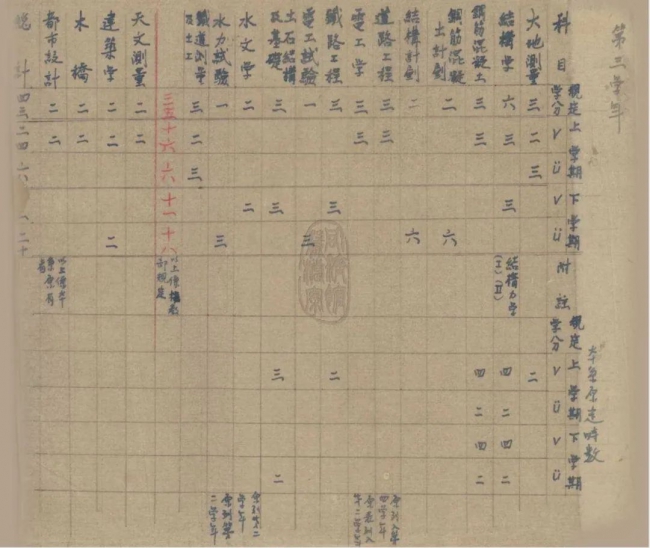 第三学年
本系原定時數
科目 規定学分 上学期 V Ü 下学期 V Ü 附註 規定学分 上学期 V Ü 下学期 V Ü
大地測量 三 二 三 二
結構学 六 三 三 結構力学(I)(II) 四 二 四 二
鋼筋混凝土 三 三 四 二 四 二
鋼筋混凝土計劃 二 六
結構計劃 二 六
道路工程 三 三
電工学 三 三
鐵路工程 三 三 二
電工試驗 一 三
土石結構及基礎 三 三 三 二
水文学 二 二
水力試驗 一 三
鐵道測量及土工 三 二 三
三五 十六 六 十一 十八 以上係據教部規定
天文測量 二 二
建築学 二 二 二
木橋 二 二
都市設計 二 二 以上係本系原有者
總計 四三 二四 六